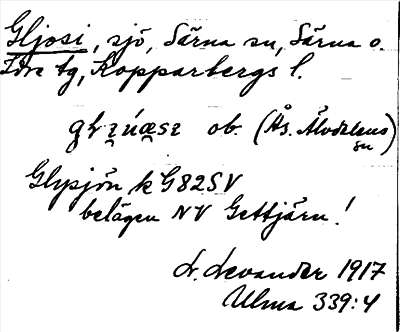 Gljosi, sjö, Särna sn, Särna o.
Idre tg, Kopparbergs l.
ob. (Ås. Älvdalens
sn)
Glysjön k G82SV
belägen NV Gettjärn!
L. Levander 1917
Ulma 339:4